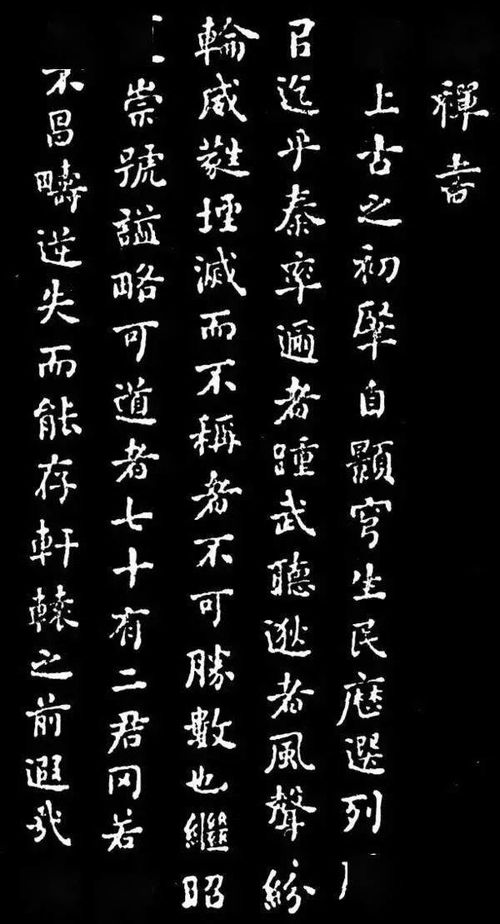 禪書
上古之初肇自顥穹生民歷選列
㠯迄乎秦率邇者踵武聽逖者風聲紛
輪威蕤堙滅而不稱者不可勝數也繼昭
崇號謚略可道者七十有二君罔若
不昌疇逆失而能存軒轅之前遐哉